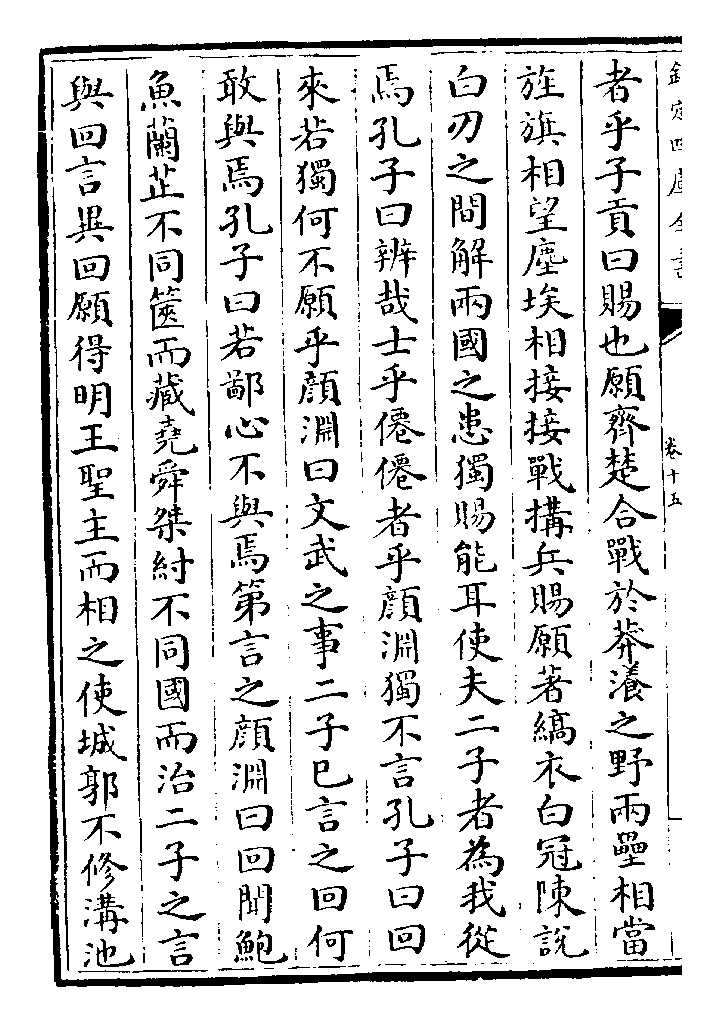 欽定四庫全書
卷十五
者乎子貢曰賜也願齊楚合戰於莽瀁之野兩壘相當
旌旗相望塵埃相接接戰搆兵賜願著縞衣白冠陳說
白刃之間解兩國之患獨賜能耳使夫二子者為我從
焉孔子曰辨哉士乎僊僊者乎顔淵獨不言孔子曰回
來若獨何不願乎顔淵曰文武之事二子已言之回何
敢與焉孔子曰若鄙心不與焉第言之顔淵曰回聞鮑
魚蘭芷不同篋而藏堯舜桀紂不同國而治二子之言
與回言異回願得明王聖主而相之使城郭不修溝池